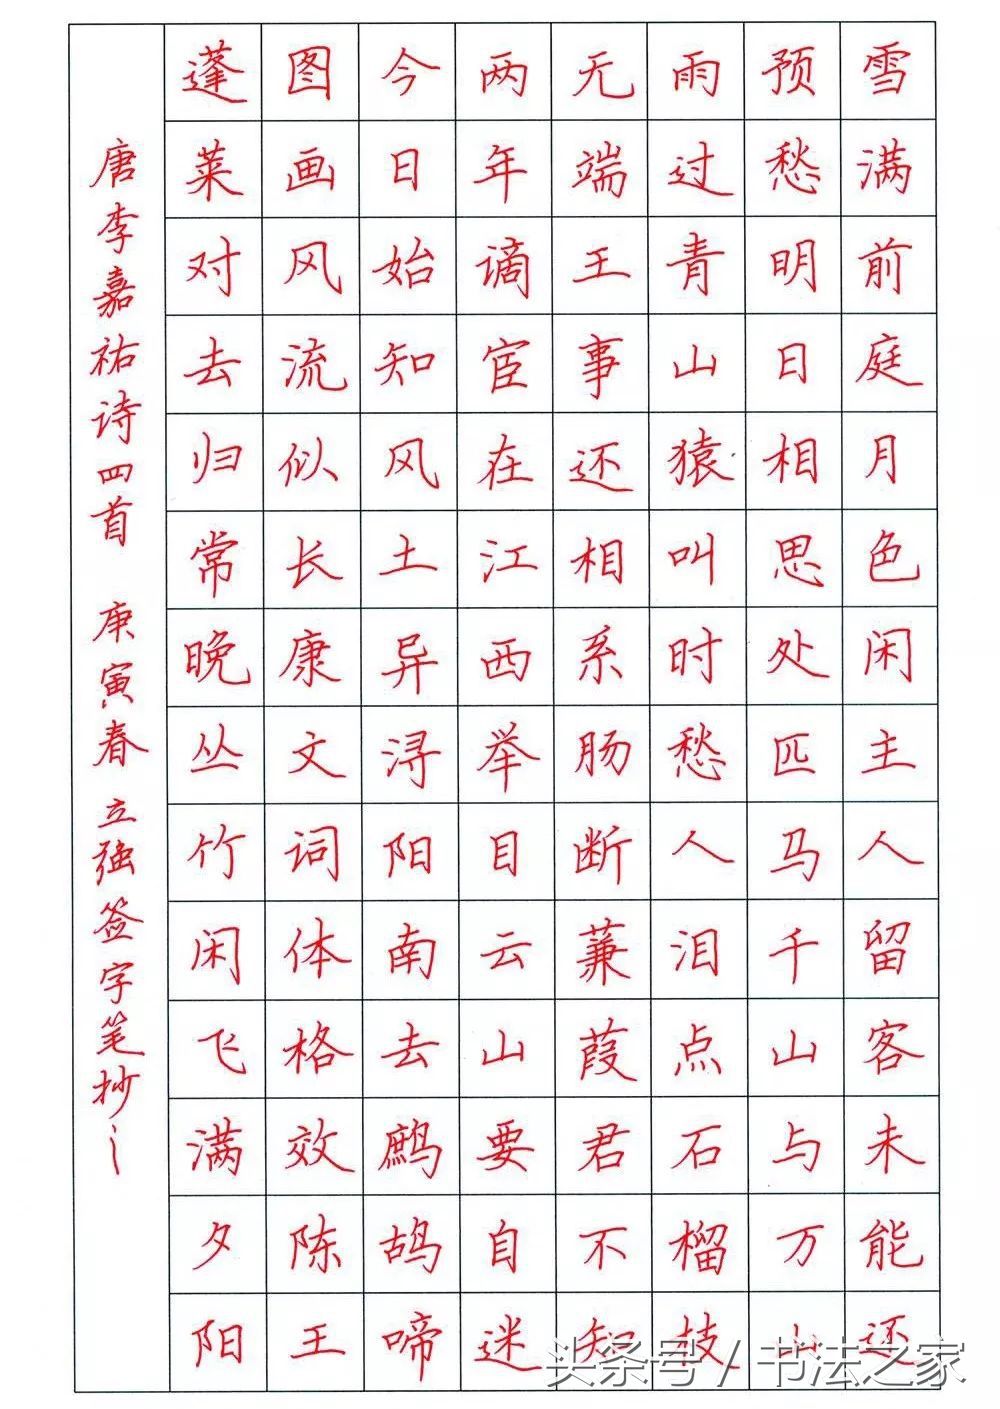 雪满前庭月色闲主人留客未能还
预愁明日相思处匹马千山与万山
雨过青山猿叫时愁人泪点石榴枝
无端王事还相系肠断蒹葭君不知
两年谪宦在江西举目云山要自迷
今日始知风土异浔阳南去鹧鸪啼
图画风流似长康文词体格效陈王
蓬莱对去归常晚丛竹闲飞满夕阳
唐李嘉祐诗四首 庚寅春 立强签字笔抄之
头条号／书法之家